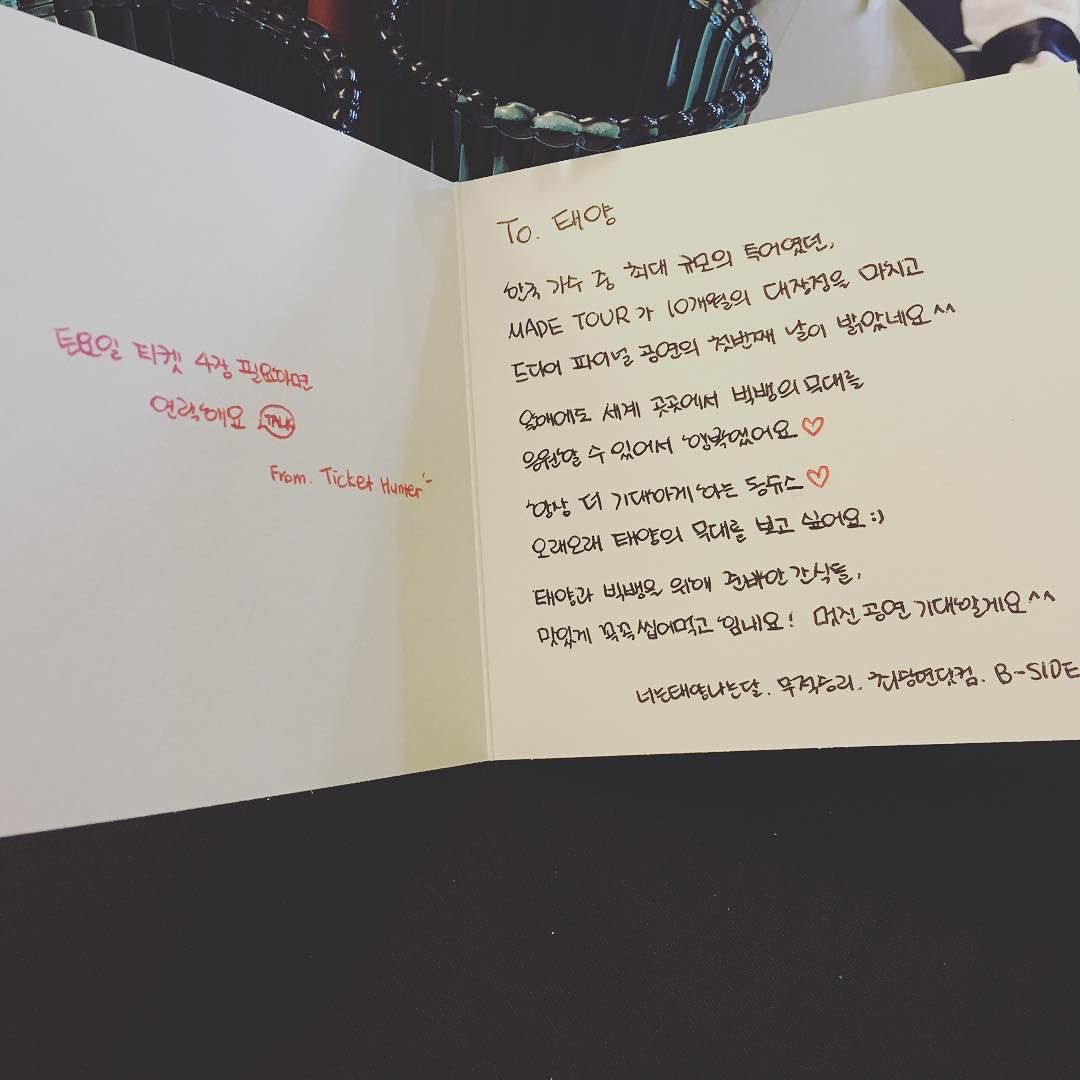 토요일 티켓 4장 필요하면
연락해요 TALK
From. Ticket Hunter
To. 태양
한국 가수 중 최대 규모의 투어였던,
MADE TOUR가 10개월의 대장정을 마치고
드디어 파이널 공연의 첫번째 날이 밝았네요^^
올해에도 세계 곳곳에서 빅뱅의 무대를
응원할 수 있어서 행복했어요♡
항상 더 기대하게 하는 동뉴스♡
오래오래 태양의 무대를 보고 싶어요:)
태양과 빅뱅을 위해 준비한 간식들,
맛있게 꼭꼭 씹어먹고 힘내요! 멋진 공연 기대할게요^^
너는태양나는달. 무적승리. 최승현닷컴. B-SIDE